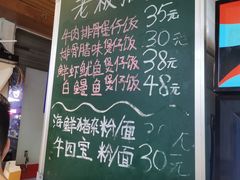 老板
牛肉排骨煲仔饭 35元
排骨腊味煲仔饭 30元
鲜虾鱿鱼煲仔饭 38元
白鳝鱼煲仔饭 48元
海鲜猪杂粉/面
牛四宝 粉/面 30元